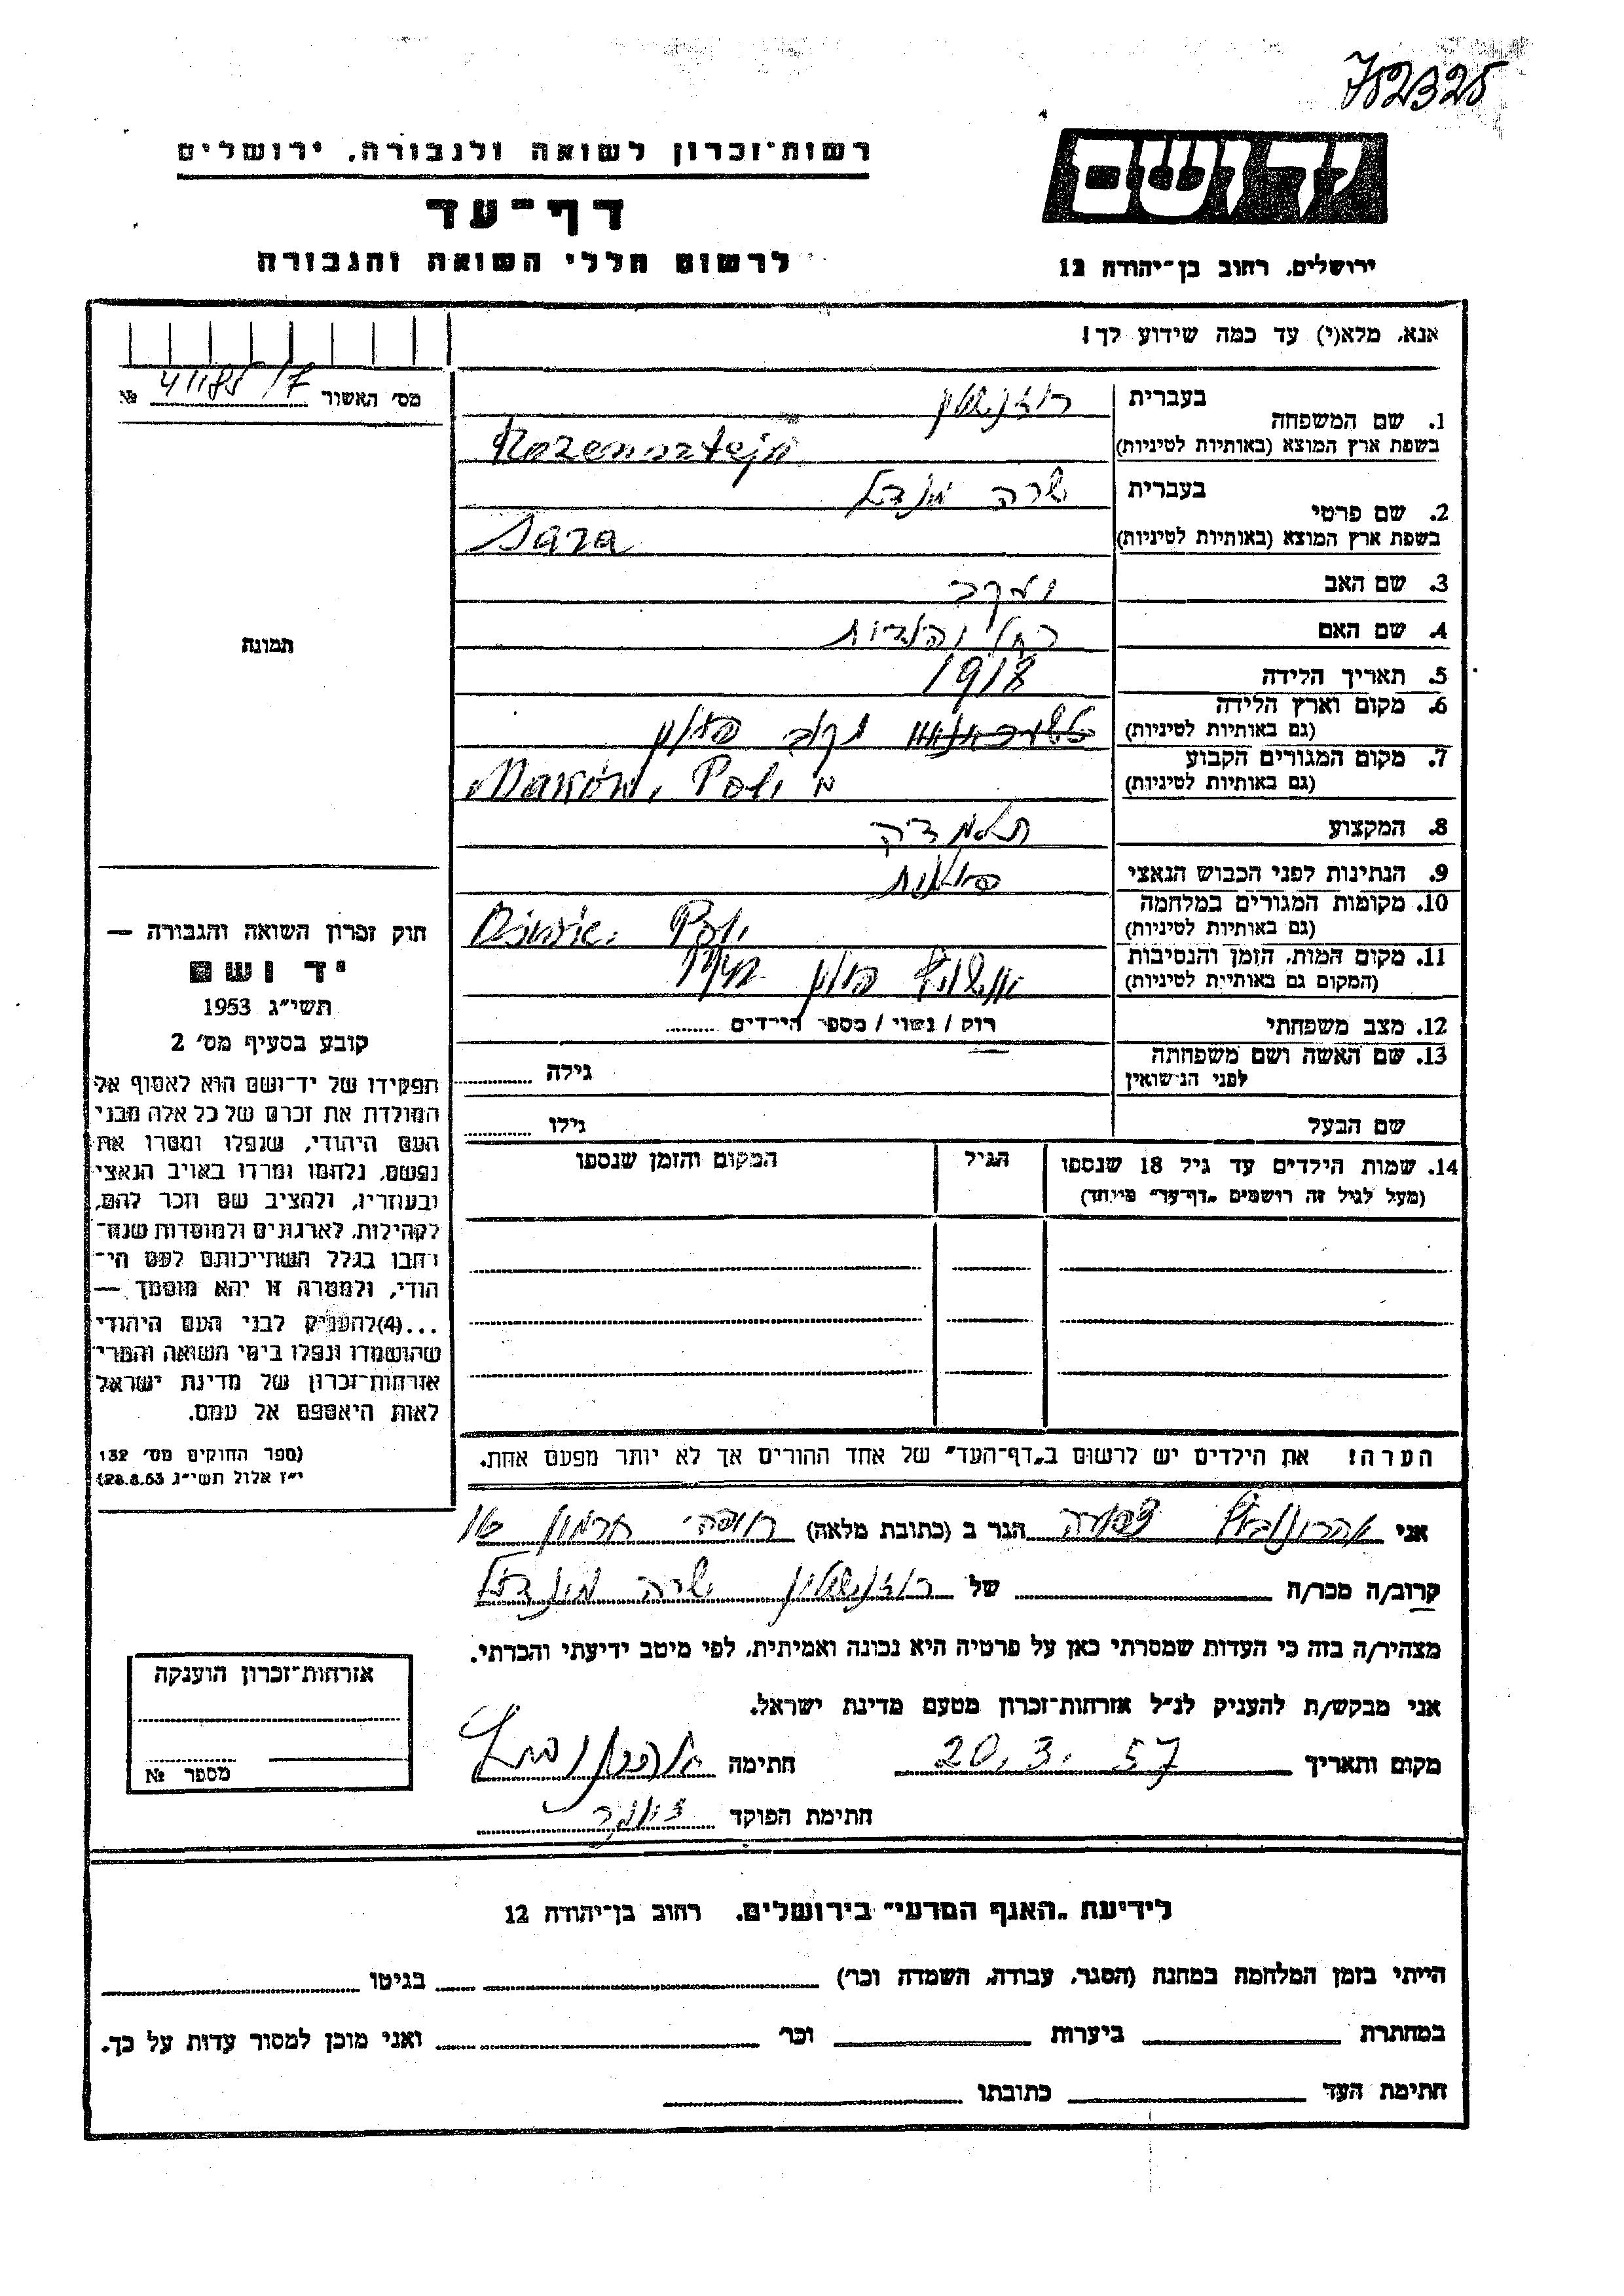 752325
רשות־זכרון לשואה ולגבורה, ירושלים
ידושם
דף־עד
לרשום חללי השואה והגבורה
ירושלים, רחוב בן־יהודה 12
אנא, מלא(י) עד כמה שידוע לך!
מס׳ האשור № 41185/7
תמונה
1. שם המשפחה
בעברית רוזנשטין
בשפת ארץ המוצא (באותיות לטיניות) Rozensztejn
2. שם פרטי
בעברית שרה מינדל
בשפת ארץ המוצא (באותיות לטיניות) Sara
3. שם האב יעקב
4. שם האם רחל
5. תאריך הלידה 1918
6. מקום וארץ הלידה
(גם באותיות לטיניות) פולין
7. מקום המגורים הקבוע
(גם באותיות לטיניות)
8. המקצוע תלמידה
9. הנתינות לפני הכבוש הנאצי פולנית
10. מקומות המגורים במלחמה
(גם באותיות לטיניות)
11. מקום המות, הזמן והנסיבות
(המקום גם באותיות לטיניות) פולין
12. מצב משפחתי רוק / נשוי / מספר הילדים
13. שם האשה ושם משפחתה
לפני הנישואין גילה
שם הבעל גילו
14. שמות הילדים עד גיל 18 שנספו
(מעל לגיל זה רושמים „דף־עד״ מיוחד)
הגיל
המקום והזמן שנספו
הערה! את הילדים יש לרשום ב„דף־העד״ של אחד ההורים אך לא יותר מפעם אחת.
חוק זכרון השואה והגבורה —
יד ושם
תשי״ג 1953
קובע בסעיף מס׳ 2
תפקידו של יד־ושם הוא לאסוף אל
המולדת את זכרם של כל אלה מבני
העם היהודי, שנפלו ומסרו את
נפשם, נלחמו ומרדו באויב הנאצי
ובעוזריו, ולהציב שם וזכר להם,
לקהילות, לארגונים ולמוסדות שנח־
רבו בגלל השתייכותם לעם הי־
הודי, ולמטרה זו יהא מוסמך —
...(4)להעניק לבני העם היהודי
שהושמדו ונפלו בימי השואה והמרי
אזרחות־זכרון של מדינת ישראל
לאות היאספם אל עמם.
(ספר החוקים מס׳ 132
י״ז אלול תשי״ג 28.8.53)
אני אהרונוביץ הגר ב (כתובת מלאה)
קרוב/ה מכר/ה של רוזנשטין שרה מינדל
מצהיר/ה בזה כי העדות שמסרתי כאן על פרטיה היא נכונה ואמיתית, לפי מיטב ידיעתי והכרתי.
אני מבקש/ת להעניק לנ״ל אזרחות־זכרון מטעם מדינת ישראל.
מקום ותאריך 20.3.57 חתימה אהרונוביץ
חתימת הפוקד
אזרחות־זכרון הוענקה
מספר №
לידיעת „האגף המדעי״ בירושלים, רחוב בן־יהודה 12
הייתי בזמן המלחמה במחנה (הסגר, עבודה, השמדה וכר׳) בגיטו
במחתרת ביערות וכר׳ ואני מוכן למסור עדות על כך.
חתימת העד כתובתו